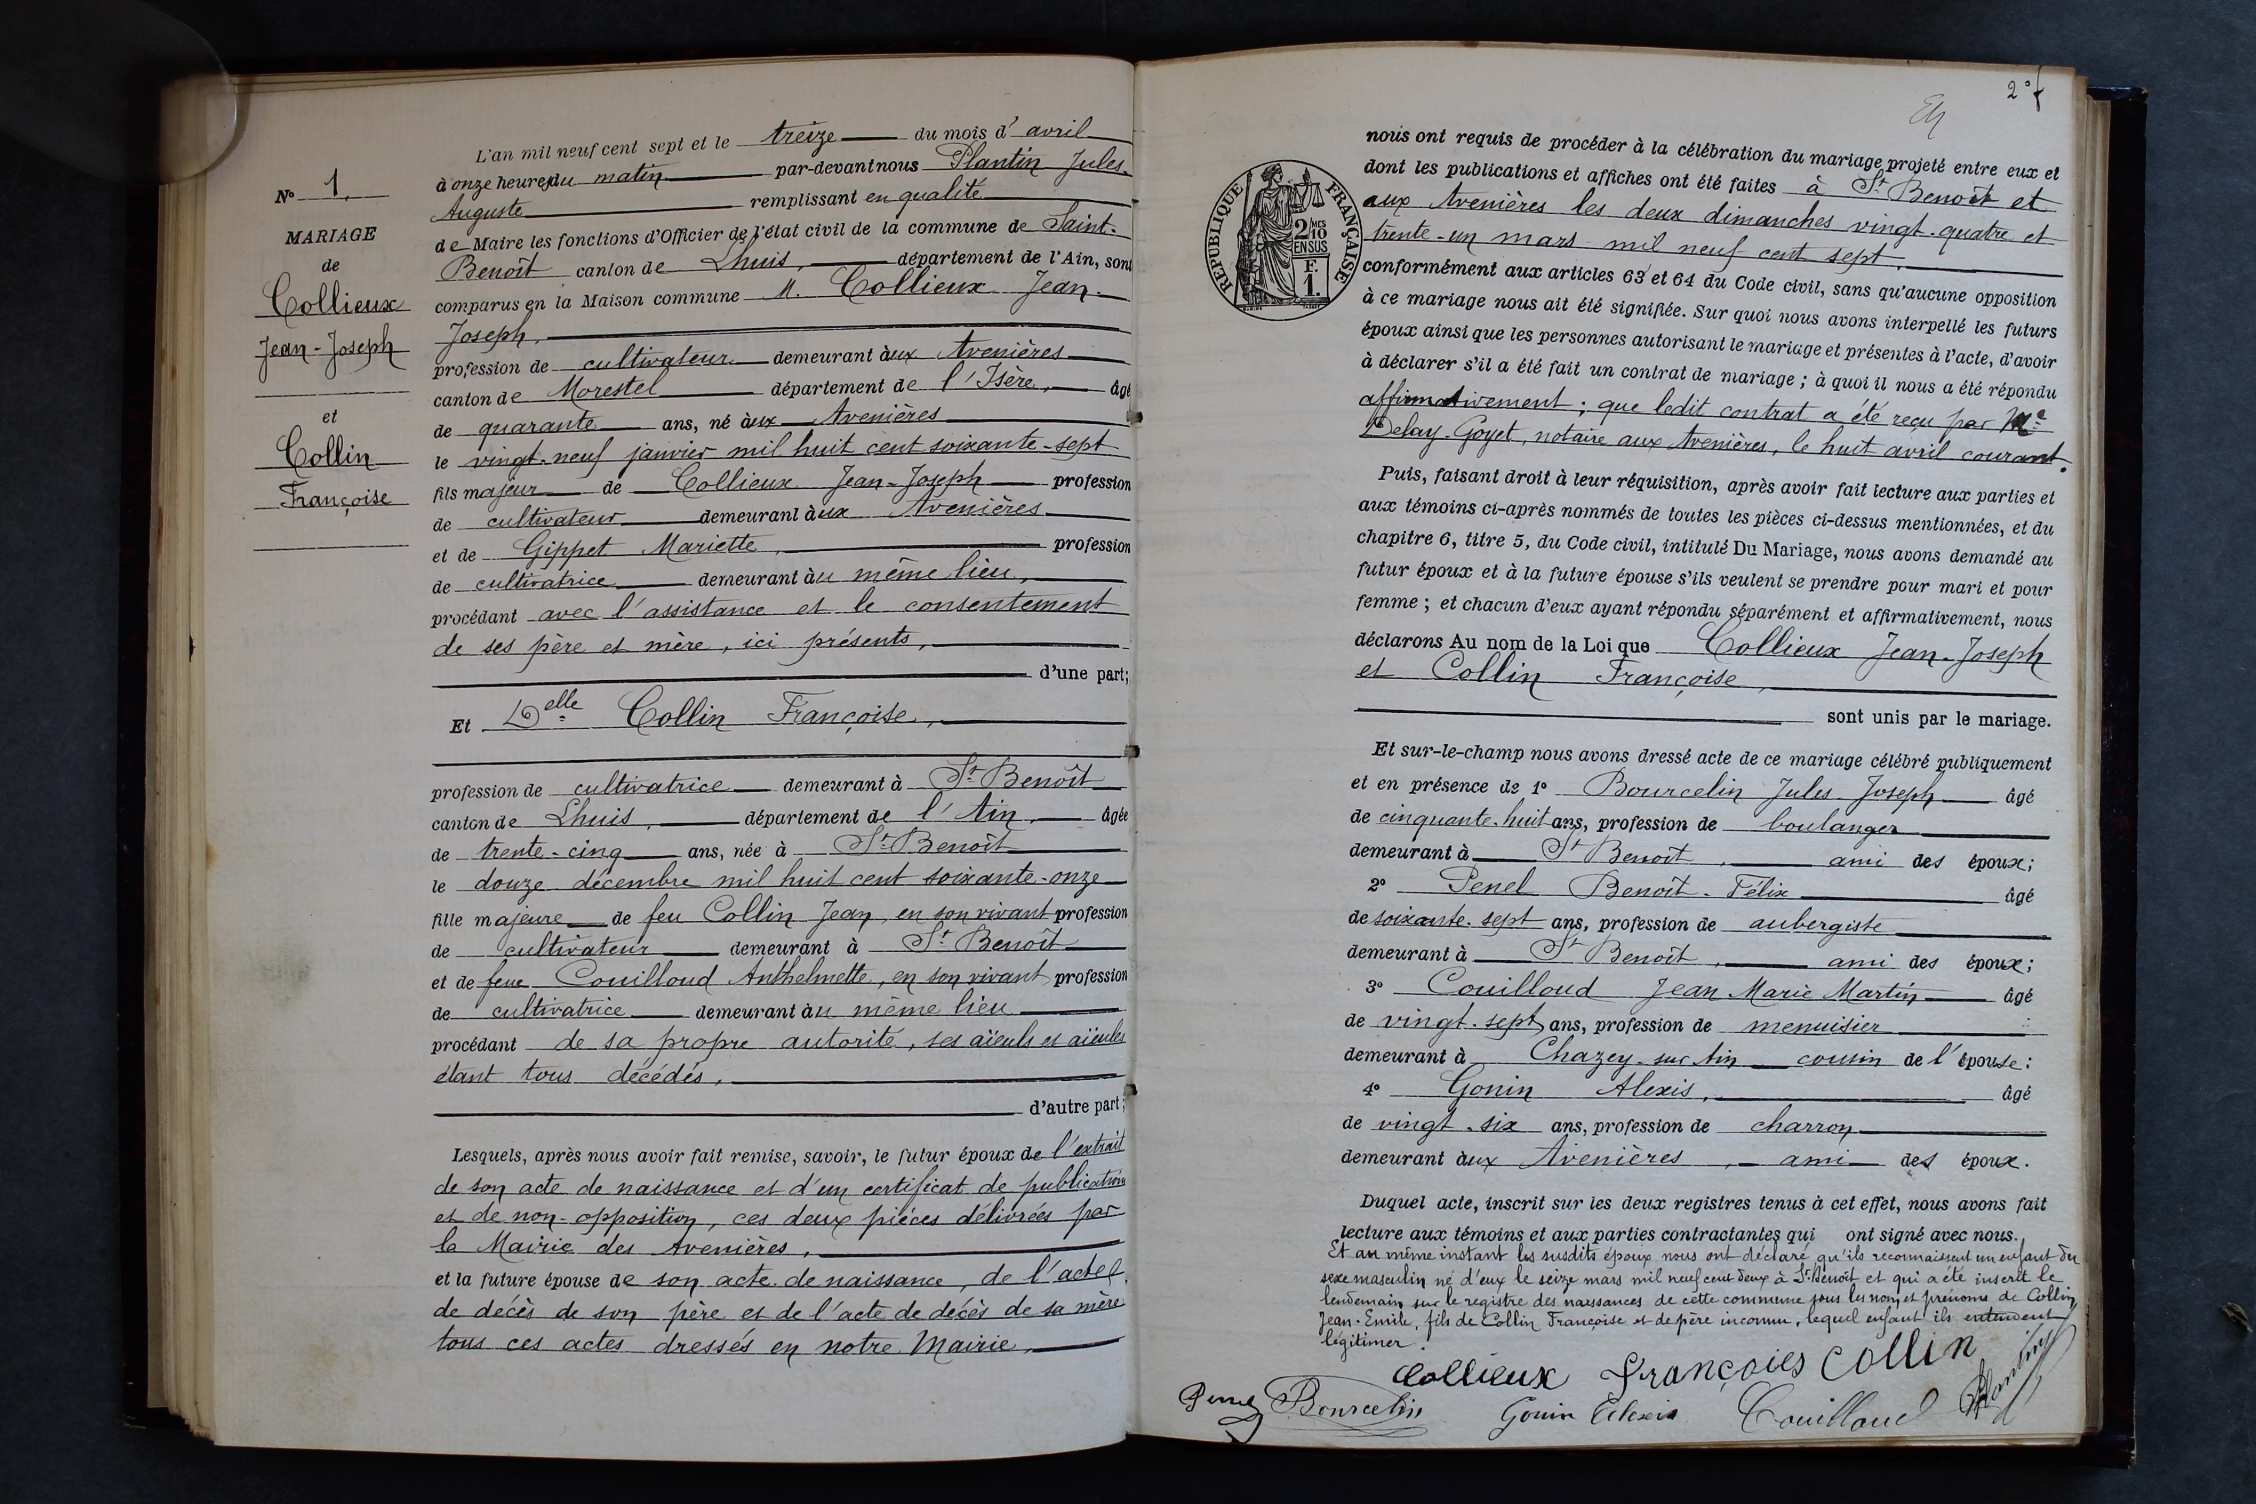 N° 1.
MARIAGE
de
Collieux
Jean-Joseph
et
Collin
Françoise
L'an mil neuf cent sept et le treize du mois d'avril
à onze heures du matin par-devant nous Plantin Jules-
Auguste remplissant en qualité
de Maire les fonctions d'Officier de l'état civil de la commune de Saint-
Benoît canton de Lhuis, département de l'Ain, sont
comparus en la Maison commune M. Collieux Jean-
Joseph,
profession de cultivateur demeurant aux Avenières
canton de Morestel département de l'Isère, âgé
de quarante ans, né aux Avenières
le vingt-neuf janvier mil huit cent soixante-sept
fils majeur de Collieux Jean-Joseph profession
de cultivateur demeurant aux Avenières
et de Gippet Mariette, profession
de cultivatrice demeurant au même lieu,
procédant avec l'assistance et le consentement
de ses père et mère, ici présents,
d'une part;
Et Delle Collin Françoise,
profession de cultivatrice demeurant à St Benoît
canton de Lhuis, département de l'Ain, âgée
de trente-cinq ans, née à St Benoît
le douze décembre mil huit cent soixante-onze
fille majeure de feu Collin Jean, en son vivant profession
de cultivateur demeurant à St Benoît
et de feue Couilloud Anthelmette, en son vivant profession
de cultivatrice demeurant au même lieu
procédant de sa propre autorité, ses aïeuls et aïeules
étant tous décédés,
d'autre part;
Lesquels, après nous avoir fait remise, savoir, le futur époux de l'extrait
de son acte de naissance et d'un certificat de publication
et de non-opposition, ces deux pièces délivrées par
la Mairie des Avenières,
et la future épouse de son acte de naissance, de l'acte
de décès de son père et de l'acte de décès de sa mère
tous ces actes dressés en notre Mairie,
2e f
RÉPUBLIQUE FRANÇAISE
2/10 MES
EN SUS
F.
1.
nous ont requis de procéder à la célébration du mariage projeté entre eux et
dont les publications et affiches ont été faites à St Benoît et
aux Avenières les deux dimanches vingt-quatre et
trente-un mars mil neuf cent sept,
conformément aux articles 63 et 64 du Code civil, sans qu'aucune opposition
à ce mariage nous ait été signifiée. Sur quoi nous avons interpellé les futurs
époux ainsi que les personnes autorisant le mariage et présentes à l'acte, d'avoir
à déclarer s'il a été fait un contrat de mariage; à quoi il nous a été répondu
affirmativement; que ledit contrat a été reçu par Me
Delay-Goyet, notaire aux Avenières, le huit avril courant.
Puis, faisant droit à leur réquisition, après avoir fait lecture aux parties et
aux témoins ci-après nommés de toutes les pièces ci-dessus mentionnées, et du
chapitre 6, titre 5, du Code civil, intitulé Du Mariage, nous avons demandé au
futur époux et à la future épouse s'ils veulent se prendre pour mari et pour
femme; et chacun d'eux ayant répondu séparément et affirmativement, nous
déclarons Au nom de la Loi que Collieux Jean-Joseph
et Collin Françoise,
sont unis par le mariage.
Et sur-le-champ nous avons dressé acte de ce mariage célébré publiquement
et en présence de 1° Bourcelin Jules Joseph âgé
de cinquante-huit ans, profession de boulanger
demeurant à St Benoît, ami des époux;
2° Penel Benoît-Félix âgé
de soixante-sept ans, profession de aubergiste
demeurant à St Benoît, ami des époux;
3° Couilloud Jean Marie Martin âgé
de vingt-sept ans, profession de menuisier
demeurant à Chazey-sur-Ain cousin de l'épouse:
4° Gonin Alexis, âgé
de vingt-six ans, profession de charron
demeurant aux Avenières, ami des époux.
Duquel acte, inscrit sur les deux registres tenus à cet effet, nous avons fait
lecture aux témoins et aux parties contractantes qui ont signé avec nous.
Et au même instant les susdits époux nous ont déclaré qu'ils reconnaissent un enfant du
sexe masculin né d'eux le seize mars mil neuf cent deux à St-Benoît et qui a été inscrit le
lendemain sur le registre des naissances de cette commune sous les nom et prénoms de Collin
Jean-Emile, fils de Collin Françoise et de père inconnu, lequel enfant ils entendent
légitimer.
Collieux Françoies Collin
Penel Bourcelin Gonin Alexis Couilloud Plantin